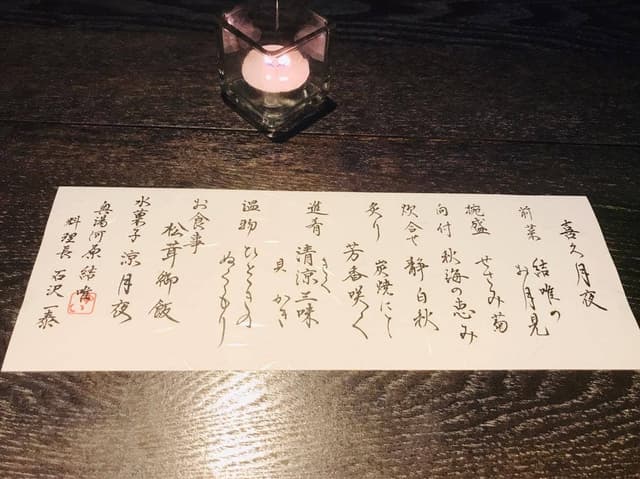 喜久月夜
前菜 結唯の
お月見
椀盛 せさみ菊
向付 秋海の恵み
炊合せ 静白秋
炙り 炭焼にて
芳香咲く
きく
進肴 清涼三味
貝 かき
温物 ひとときの
ぬくもり
お食事
松茸御飯
水菓子 涼月夜
奥湯河原 結唯
料理長 石沢一泰